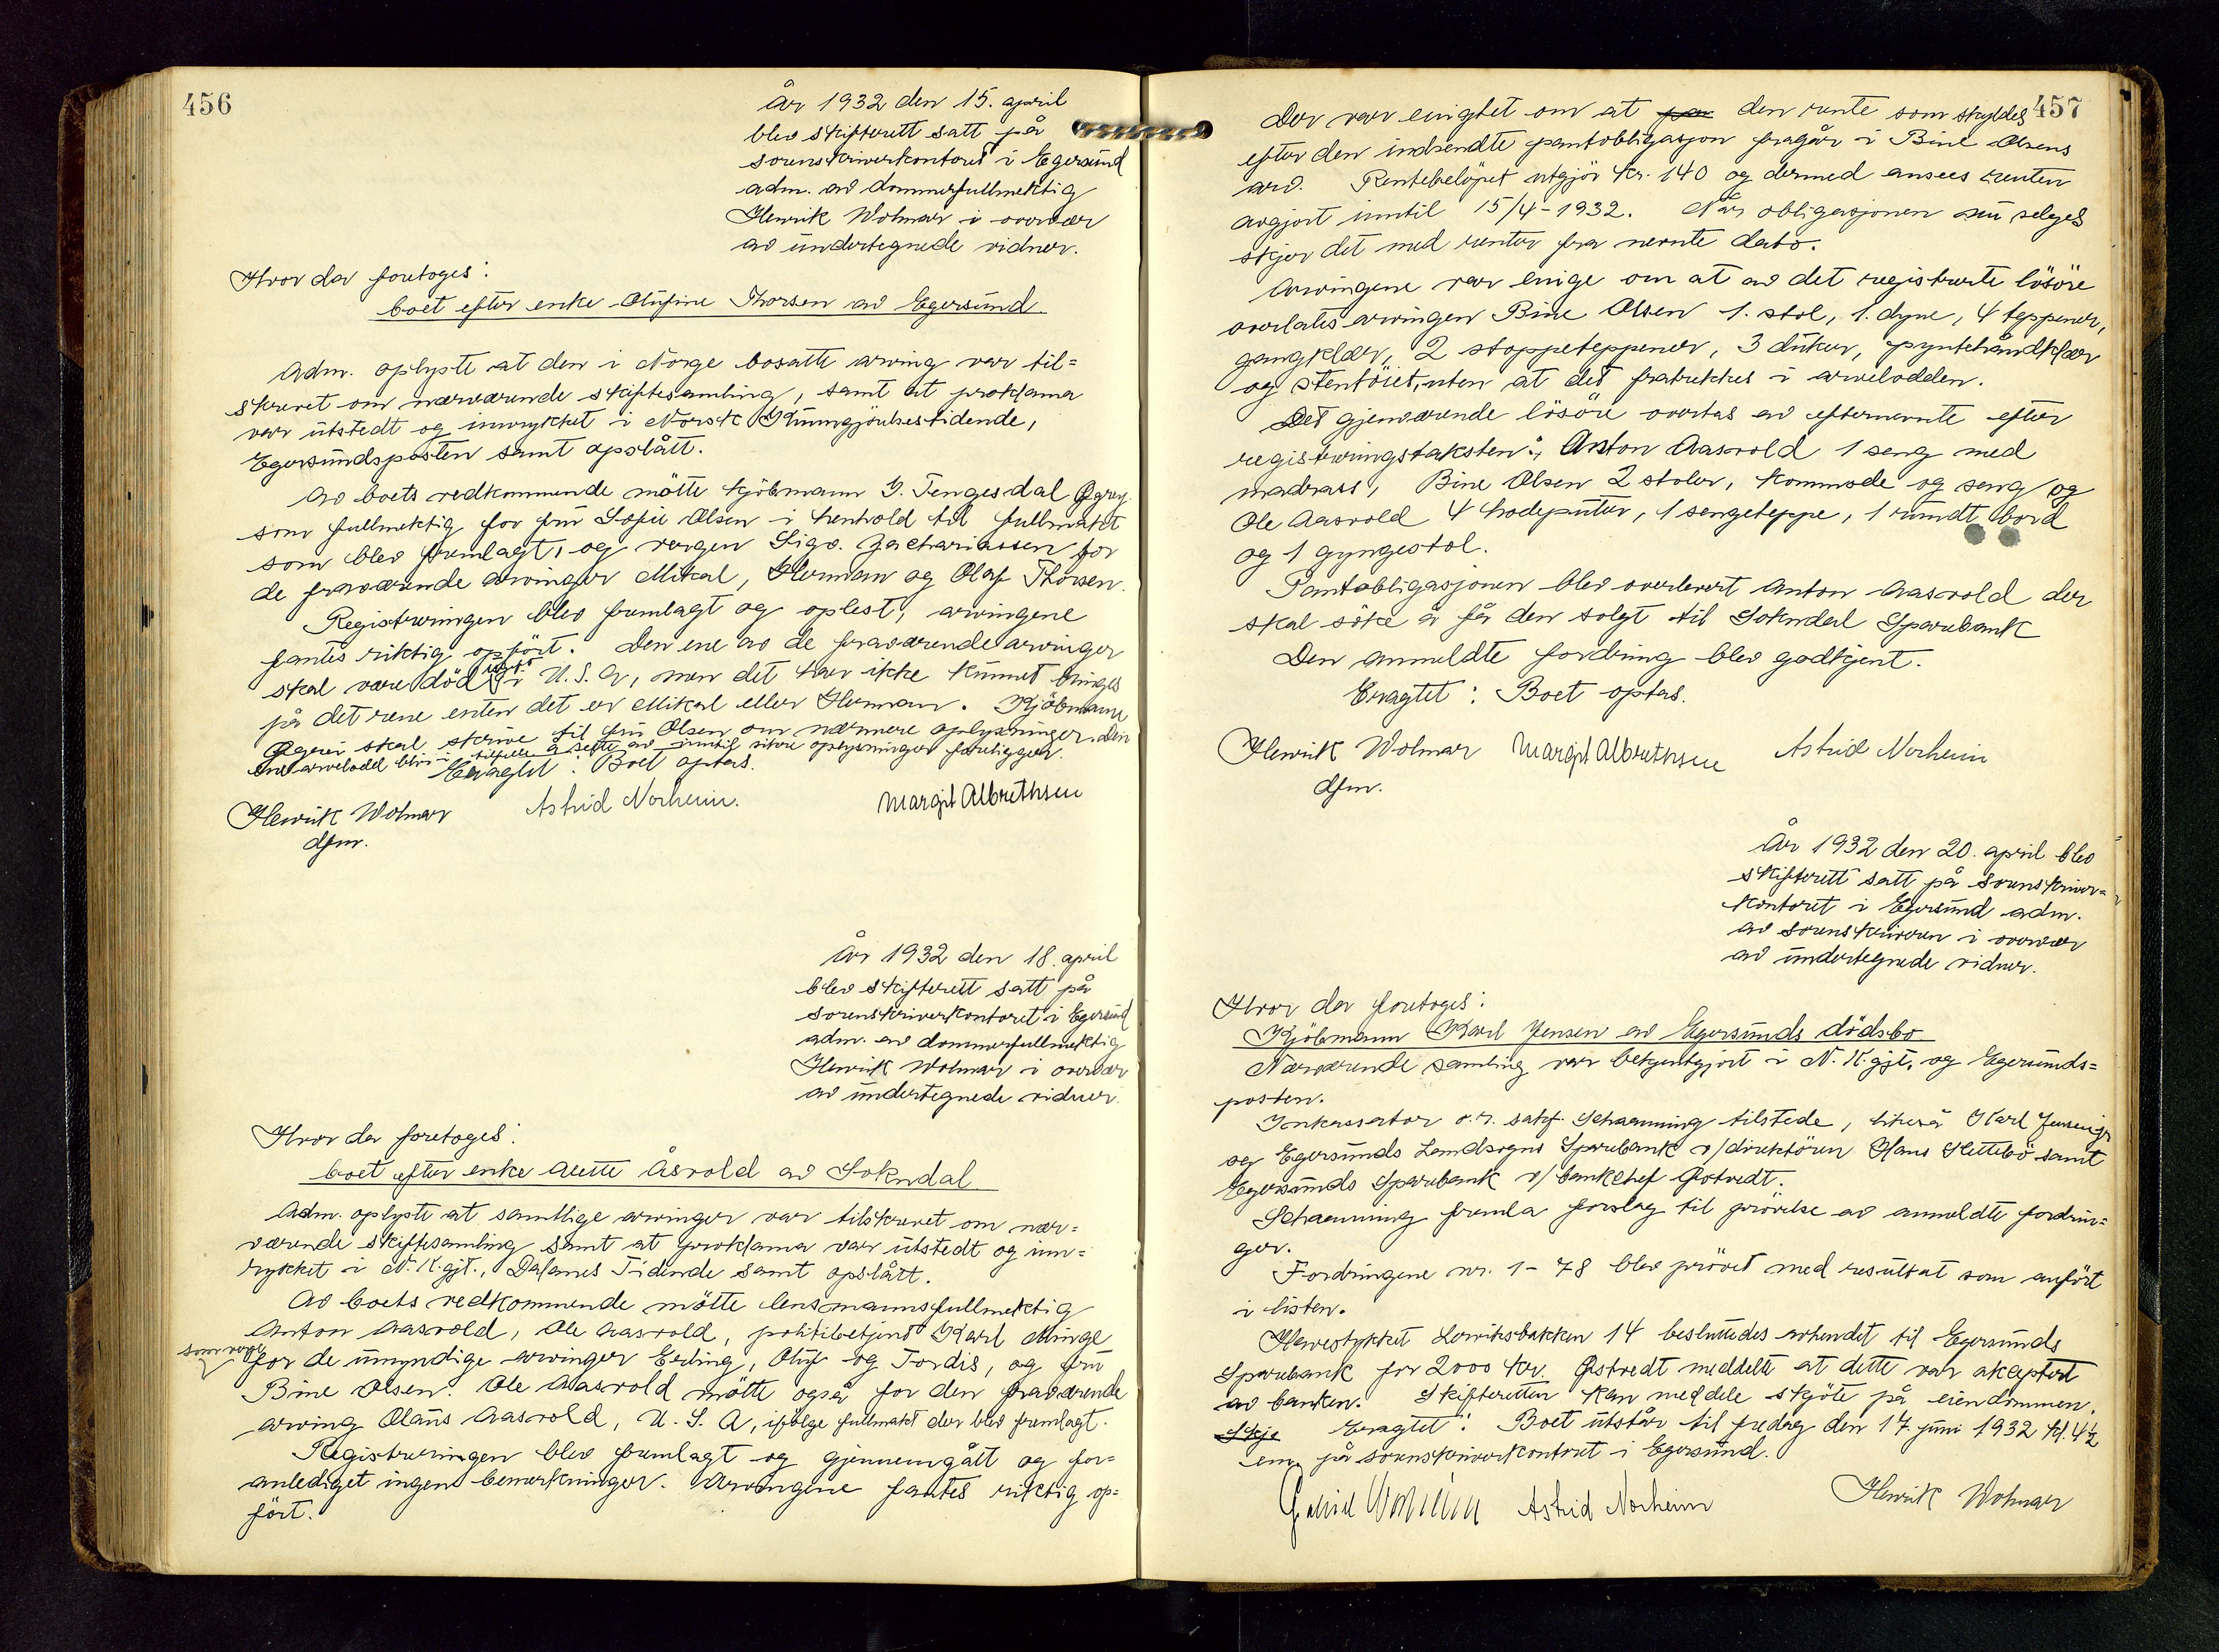 456
År 1932 den 15. april
blev skifterett satt på
sorenskriverkontoret i Egersund
adm. av dommerfullmektig
Henrik Wolmar i overvær
av undertegnede vidner.
Hvor der foretoges:
boet efter enke Olufine Thorsen av Egersund.
Adm. oplyste at den i Norge bosatte arving var til=
skrevet om nærværende skiftesamling, samt at proklama
var utstedt og innrykket i Norsk Kunngjörelsestidende,
Egersundsposten samt opslått.
Av boets vedkommende mötte kjöbmann G. Tengesdal
som fullmektig for fru Sofie Olsen i henhold til fullmakt
som blev fremlagt, og vergen Sigv. Zachariassen for
de fraværende arvinger Mikal, Herman og Olaf Thorsen.
Registreringen blev fremlagt og oplest, arvingene
fantes riktig opfört. Den ene av de fraværende arvinger
skal være död i U.S.A, men det har ikke kunnet bringes
på det rene enten det er Mikal eller Herman. Kjöbmann
skal skrive til fru Olsen om nærmere oplysninger. Den
ene arvelodd blir i tilfelle å sette av inntil sikre oplysninger foreligger.
Eragtet: Boet optas.
Henrik Wolmar Astrid Norheim. Margit Albrethsen
dfm.
År 1932 den 18. april
blev skifterett satt på
sorenskriverkontoret i Egersund
adm. av dommerfullmektig
Henrik Wolmar i overvær
av undertegnede vidner.
Hvor der foretoges:
boet efter enke Aette Åsvold av Sokndal
Adm. oplyste at samtlige arvinger var tilskrevet om nær=
værende skiftesamling samt at proklama var utstedt og inn=
rykket i N. K.gjt., Dalanes Tidende samt opslått.
Av boets vedkommende mötte lensmannsfullmektig
Anton Aasvold, Ole Aasvold, politibetjent Karl Minge
som verge
for de umyndige arvinger Erling, Oluf og Tordis, og fru
Bine Olsen. Ole Aasvold mötte også for den fraværende
arving Olaus Aasvold, U.S.A, ifölge fullmakt der blev fremlagt.
Registreringen blev fremlagt og gjennemgått og for=
anlediget ingen bemerkninger. Arvingene fantes riktig op=
fört.
457
Der var enighet om at den rente som skyldes
efter den indsendte pantobligasjon fragår i Bine Olsens
arv. Rentebelöpet utgjör kr. 140 og dermed ansees renten
avgjort inntil 15/4-1932. Når obligasjonen nu selges
skjer det med renter fra nevnte dato.
Arvingene var enige om at av det registrerte lösöre
overlates arvingen Bine Olsen 1. stol, 1. dyne, 4 teppener,
gangklær, 2 stoppeteppener, 3 duker, pyntehåndklær
og stentöiet, uten at det fratrekkes i arvelodden.
Det gjenværende lösöre overtas av efternevnte efter
registreringstaksten: Anton Aasvold 1 seng med
madrass, Bine Olsen 2 stoler, kommode og seng og
Ole Aasvold 4 hodeputer, 1 sengeteppe, 1 rundt bord
og 1 gyngestol.
Pantobligasjonen blev overlevert Anton Aasvold der
skal söke å få den solgt til Sokndal Sparebank
Den anmeldte fordring blev godkjent.
Eragtet: Boet optas.
Henrik Wolmar Margit Albrethsen Astrid Norheim
dfm.
År 1932 den 20. april blev
skifterett satt på sorenskriver=
kontoret i Egersund adm.
av sorenskriveren i overvær
av undertegnede vidner.
Hvor der foretoges:
Kjöbmann Karl Jensen av Egersunds dödsbo
Nærværende samling var bekjentgjort i N. K.gjt. og Egersunds=
posten.
Inkassator o.r. sakf. Schanning tilstede, likeså Karl Jensen jr
og Egersunds Landsogns Sparebank v/direktören Hans Slettebö samt
Egersunds Sparebank v/ bankchef Østvedt.
Schanning fremla forslag til prövelse av anmeldte fordrin=
ger.
Fordringene nr. 1-78 blev prövet med resultat som anfört
i listen.
Havestykket Lervikbakken 14 besluttedes avhendet til Egersunds
Sparebank for 2000 kr. Østvedt meddelte at dette var akseptert
av banken. Skifteretten kan meddele skjöte på eiendommen.
Skje Eragtet: Boet utstår til fredag den 17. juni 1932 kl. 4½
em. på sorenskriverkontoret i Egersund.
Astrid Norheim Henrik Wolmar